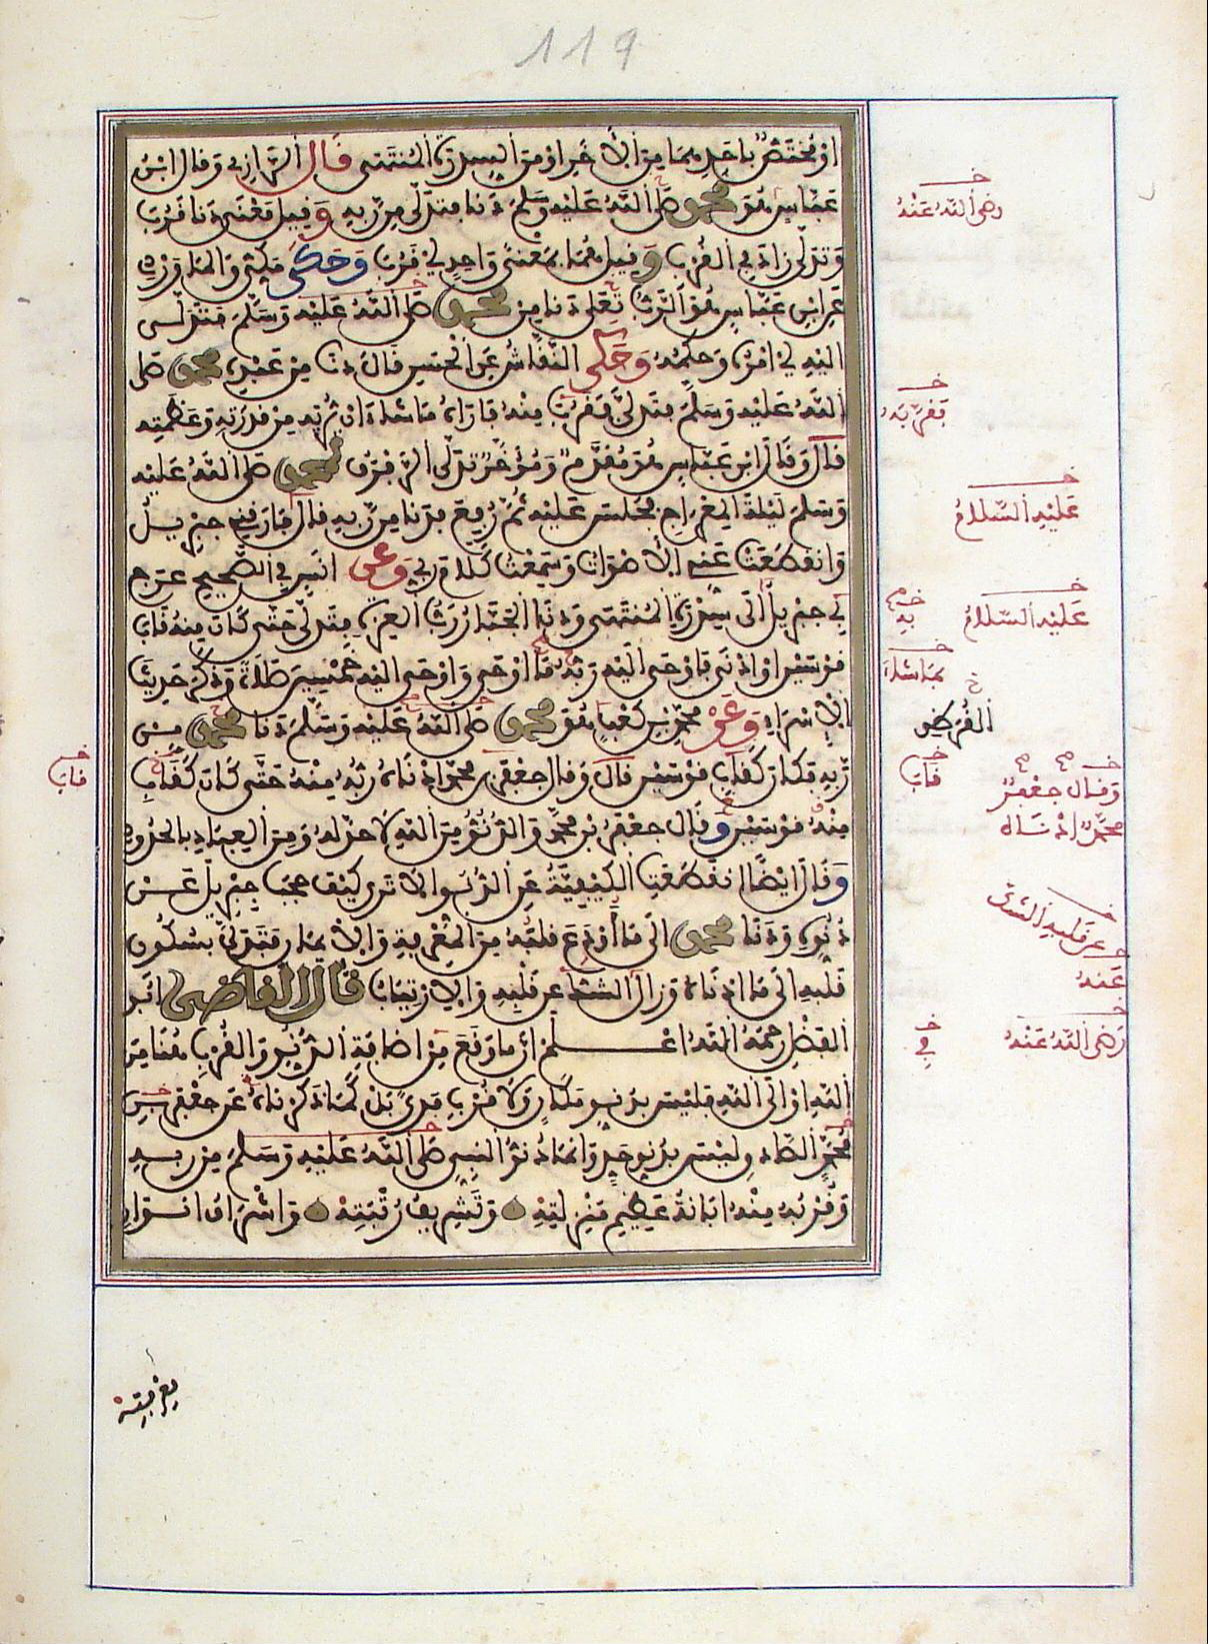 119
او مختص باحدهما من الاخر او من السدرة المنتهى قال الرازي وقال ابن
عباس هو محمد صلى الله عليه وسلم دنا فتدلى من ربه وقيل معنى دنا قرب
وتدلى زاد في القرب وقيل هما بمعنى واحد اي قرب وحكى مكي والماوردي
عن ابن عباس هو الرب تعلى دنا من محمد صلى الله عليه وسلم فتدلى
اليه اي امره وحكمه وحكى النقاش عن الحسن قال دنا من عبده محمد صلى
الله عليه وسلم فتدلى فقرب منه فاراه ما شاء ان يريه من قدرته وعظمته
قال وقال ابن عباس هو مقدم ومؤخر تدلى الرفرف لمحمد صلى الله عليه
وسلم ليلة المعراج فجلس عليه ثم رفع فدنا من ربه قال فارقني جبريل
وانقطعت عني الاصوات وسمعت كلام ربي وعن انس في الصحيح عرج
بي جبريل الى سدرة المنتهى ودنا الجبار رب العزة فتدلى حتى كان منه قاب
قوسين او ادنى فاوحى اليه ربه ما اوحى واوحى اليه خمسين صلاة وذكر حديث
الاسراء وعن محمد بن كعب هو محمد صلى الله عليه وسلم دنا محمد من
ربه فكان كقاب قوسين قال وقال جعفر بن محمد ادناه ربه منه حتى كان كقاب
منه قوسين وقال جعفر بن محمد والدنو من الله لا حد له ومن العباد بالحدود
وقال ايضا انقطعت الكيفية عن الدنو الا ترى كيف حجب جبريل عن
دنوه ودنا محمد الى ما أودع قلبه من المعرفة والايمان فتدلى بسكون
قلبه الى ما ادناه وزال الشك عن قلبه والارتياب قال القاضي ابو
الفضل رحمه الله اعلم ان ما وقع من اضافة الدنو والقرب هنا من
الله او الى الله فليس بدنو مكان ولا قرب مدى بل كما ذكرناه عن جعفر بن
محمد الصادق ليس بدنو حد وانما دنو النبي صلى الله عليه وسلم من ربه
وقربه منه ابانة عظيم منزلته وتشريف رتبته واشراق انوار
رضي الله عنه
فقربه
عليه السلام
به
عليه السلام
بما شاء
القرظي
قاب
قاب
وقال جعفر
محمد ادناه
عن قلبه الشك
عنه
رضي الله عنه
في
معرفته